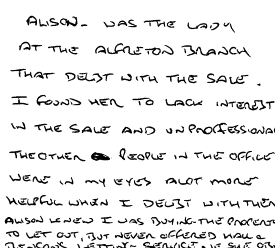 ALISON - WAS THE LADY
AT THE ALFRETON BRANCH
THAT DEALT WITH THE SALE.
I FOUND HER TO LACK INTEREST
IN THE SALE AND UNPROFESSIONAL
THE OTHER PEOPLE IN THE OFFICE
WERE IN MY EYES ALOT MORE
HELPFUL WHEN I DEALT WITH THEM
ALISON KNEW I WAS BUYING THE PROPERTY
TO LET OUT, BUT NEVER OFFERED HALL &
BENSONS LETTING SERVICE